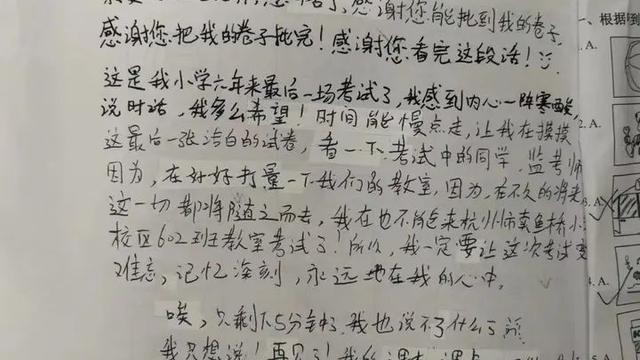 感谢您能批到我的卷子
感谢您把我的卷子批完！感谢您看完这段话！
这是我小学六年来最后一场考试了，我感到内心一阵寒酸，
说时话，我多么希望！时间能慢点走，让我在摸摸
这最后一张洁白的试卷，看一下考试中的同学、监考师
因为，在好好打量一下我们的教室，因为，在不久的将来
这一切都将随之而去，我在也不能来杭州师卖鱼桥小
校区602班教室考试了！所以，我一定要让这次考试变
难忘，记忆深刻，永远地在我的心中。
唉，只剩下5分钟了，我也说不了什么了
我只想说！再见了！我的
一、根据
1. A.
2. A.
3. A.
4. A.